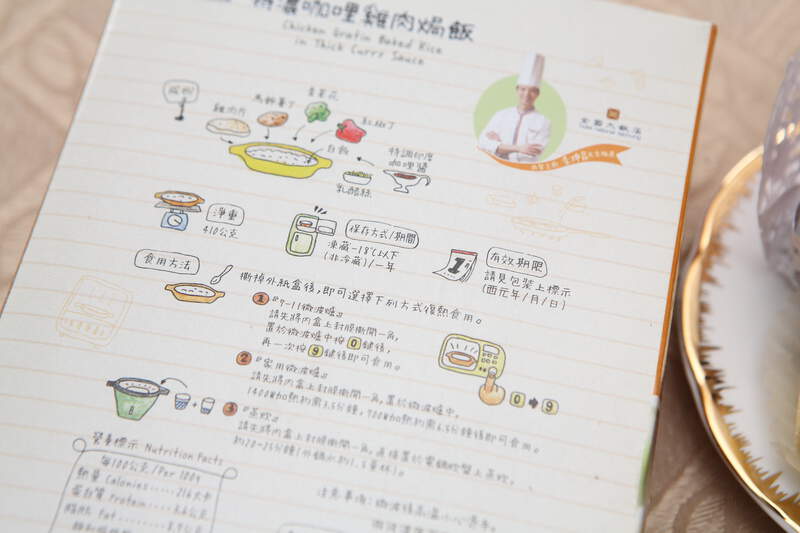 濃咖哩雞肉焗飯
Chicken Gratin Baked Rice
in Thick Curry Sauce
成份
雞肉片
馬鈴薯丁
青花菜
紅椒丁
白飯
特調印度
咖哩醬
乳酪絲
全國大飯店
淨重
410公克
保存方式/期間
凍藏-18℃以下
(非冷藏)/一年
有效期限
請見包裝上標示
(西元年/月/日)
食用方法
撕掉外紙盒後,即可選擇下列方式復熱食用。
1 『7-11微波爐』
請先將內盒上封膜撕開一角,
置於微波爐中按0鍵後,
再一次按9鍵後即可食用。
2 『家用微波爐』
請先將內盒上封膜撕開一角,置於微波爐中,
1400W加熱約需3.5分鐘,700W加熱約需6.5分鐘後即可食用。
0→9
3 『蒸炊』
請先將內盒上封膜撕開一角,直接置於電鍋炊盤上蒸炊,
約20-25分鐘
營養標示 Nutrition Facts
每100公克/Per 100g
熱量 Calories 216大卡
蛋白質 Protein
脂肪 Fat
注意事項:微波後高溫小心燙手。